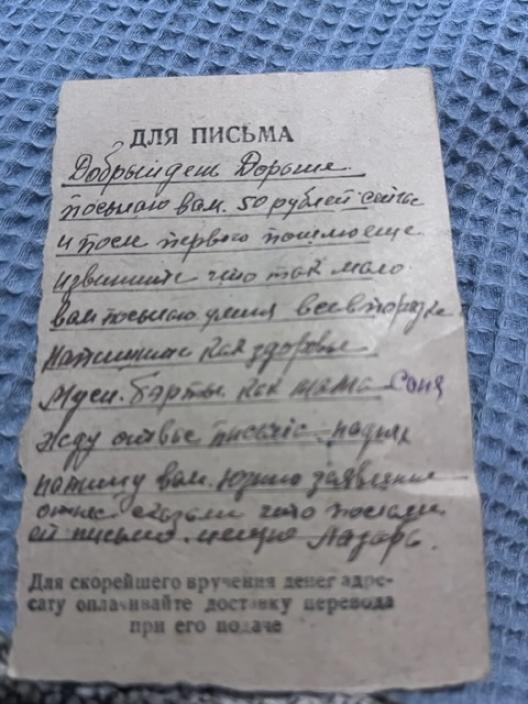 ДЛЯ ПИСЬМА
Добрый день Дорогие
посылаю вам. 50 рублей сейчас
и после первого пошлю еще
извините что так мало
вам посылаю у меня все в порядке
напишите как здоровье
Муси. Бэрты. как мама Соня
жду ответ письма
напишу вам. заявление
сказали что послали
ей письмо. целую Лазарь.
Для скорейшего вручения денег адре-
сату оплачивайте доставку перевода
при его подаче